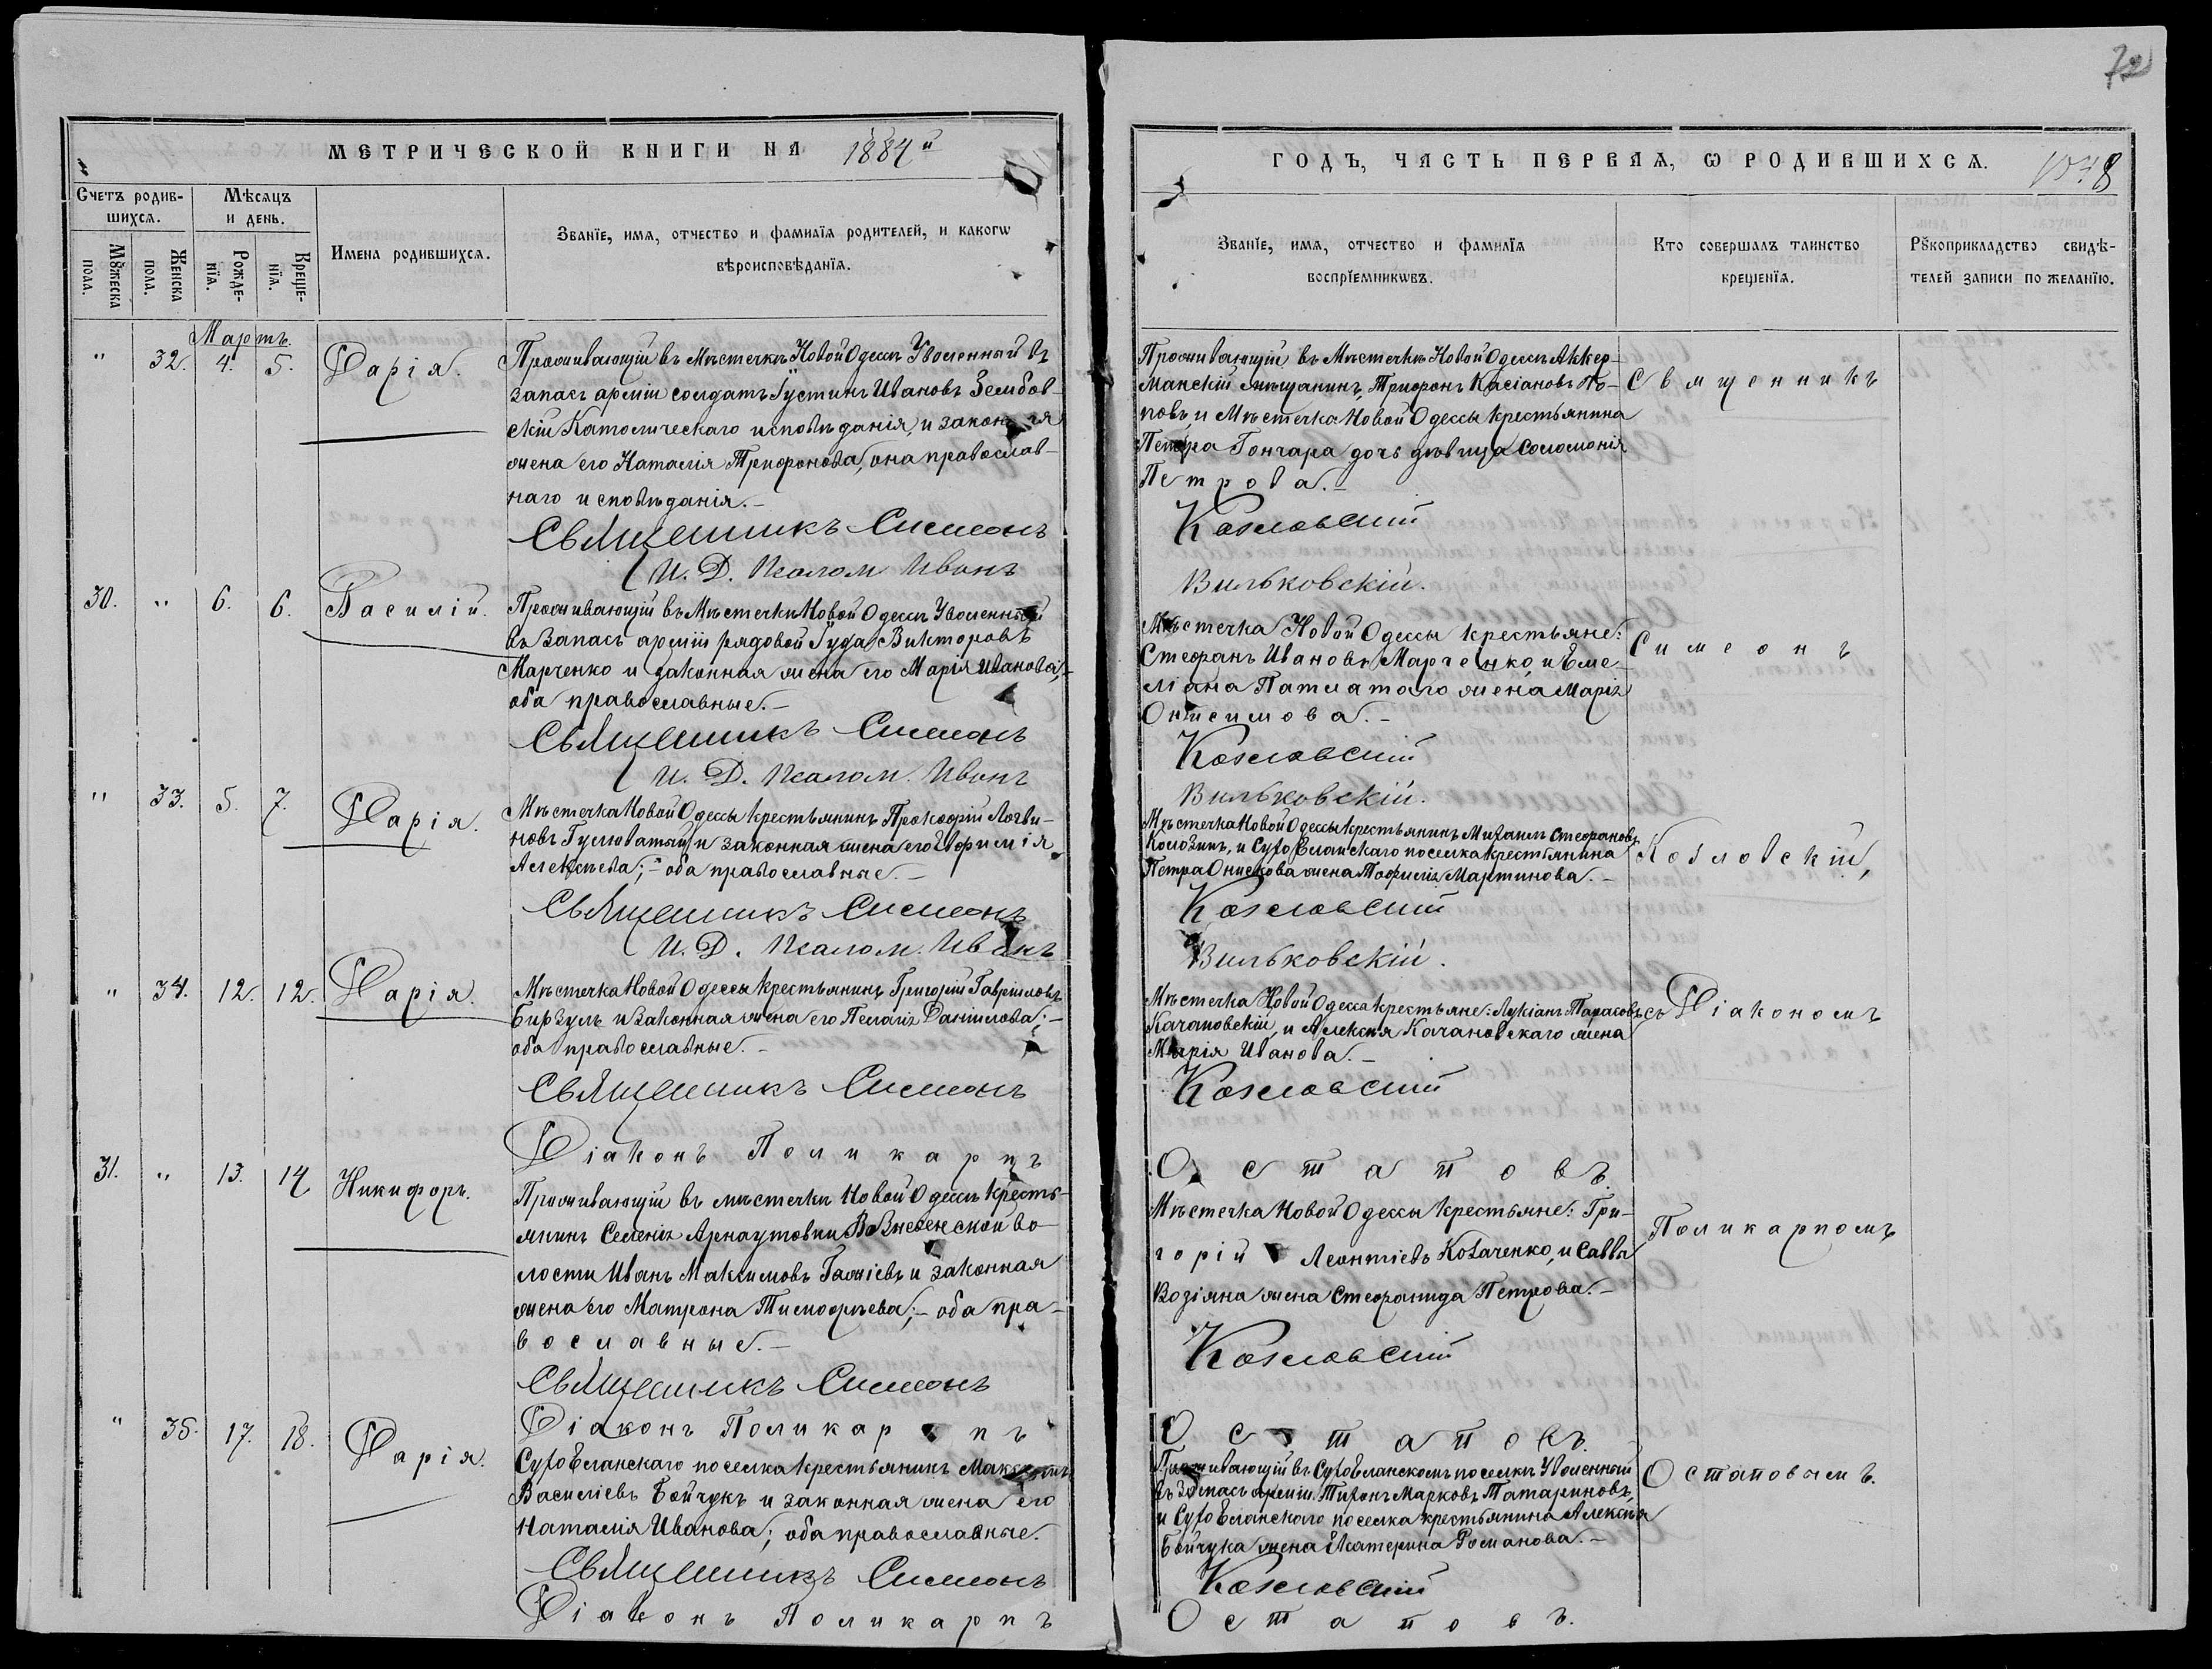 72
МЕТРИЧЕСКОЙ КНИГИ НА 1884й
ГОДЪ, ЧАСТЬ ПЕРВАЯ, Ѡ РОДИВШИХСЯ.
Счетъ родив-
шихся.
Мѣсяцъ
и день.
Мꙋжеска
пола.
Женска
пола.
Рожде-
нїя.
Креще-
нїя.
Имена родившихся.
Званїе, имя, отчество и фамилїя родителей, и какогѡ
вѣроисповѣданїя.
Званїе, имя, отчество и фамилїя
воспрїемникѡвъ.
Кто совершалъ таинство
крещенїя.
Рꙋкоприкладство свидѣ-
телей записи по желанїю.
Мартъ.
" 32. 4. 5. Дарія.
Проживающій въ Мѣстечкѣ Новой Одессѣ Уволенный въ
запасъ арміи солдатъ Густинъ Ивановъ Зембов-
скій Католическаго исповѣданія, и законная
жена его Наталія Трифонова, она православ-
наго исповѣданія.-
Священникъ Симеонъ
И. Д. Псалом Иванъ
Проживающій въ Мѣстечкѣ Новой Одессѣ Аккер-
манскій мѣщанинъ Трифонъ Касіановъ По-
повъ, и Мѣстечка Новой Одессы крестьянина
Петра Гончара дочь дѣвица Соломонія
Петрова.-
Козловскій
Вильковскій.
Священникъ
30. " 6. 6. Василій.
Проживающій въ Мѣстечкѣ Новой Одессѣ Уволенный
въ Запасъ арміи рядовой Гуда Викторовъ
Марченко и законная жена его Марія Иванова;-
оба православные.-
Священникъ Симеонъ
И. Д. Псалом. Иванъ
Мѣстечка Новой Одессы крестьяне:
Стефанъ Ивановъ Марченко, и Еме-
ліана Патлатаго жена Марія
Онисимова.-
Козловскій
Вильковскій.
Симеонъ
" 33. 5. 7. Дарія.
Мѣстечка Новой Одессы крестьянинъ Прокофій Логви-
новъ Гуглюватый и законная жена его Евфимія
Алексѣева;- оба православные.-
Священникъ Симеонъ
И. Д. Псалом. Иванъ
Мѣстечка Новой Одессы крестьянинъ Михаилъ Стефановъ
и Сухо Еланскаго поселка крестьянина
Петра Онискова жена Мартинова.-
Козловскій
Вильковскій.
Козловскій,
" 34. 12. 12. Дарія.
Мѣстечка Новой Одессы крестьянинъ Григорій Гавріиловъ
Бирзулъ и законная жена его Пелагія Даніилова;-
оба православные.-
Священникъ Симеонъ
Діаконъ Поликарпъ
Мѣстечка Новой Одесса крестьяне: Лукіанъ Тарасовъ
Качановскій, и Алексѣя Качановскаго жена
Марія Иванова.-
Козловскій
Остаповъ.
съ Діакономъ
31. " 13. 14 Никифоръ.
Проживающій въ мѣстечкѣ Новой Одессѣ кресть-
янинъ Селенія Арнаутовки Вознесенской во-
лости Иванъ Максимовъ Гажіевъ и законная
жена его Матрона Тимофѣева;- оба пра-
вославные.-
Священникъ Симеонъ
Діаконъ Поликарпъ
Мѣстечка Новой Одессы крестьяне: Гри-
горій Леонтіевъ Козаченко, и Савва
Возіяна жена Стефанида Петрова.-
Козловскій
Остаповъ.
Поликарпомъ
" 35. 17. 18. Дарія.
Сухо Еланскаго поселка крестьянинъ Максимъ
Василіевъ Бойчукъ и законная жена его
Наталія Иванова; оба православные.
Священникъ Симеонъ
Діаконъ Поликарпъ
Проживающій въ Сухо Еланскомъ поселкѣ Уволенный
въ Запасъ арміи Тихонъ Марковъ Татариновъ,
и Сухо Еланскаго поселка крестьянина Алексѣя
Бойчука жена Екатерина Романова.-
Козловскій
Остаповъ.
Остаповымъ.